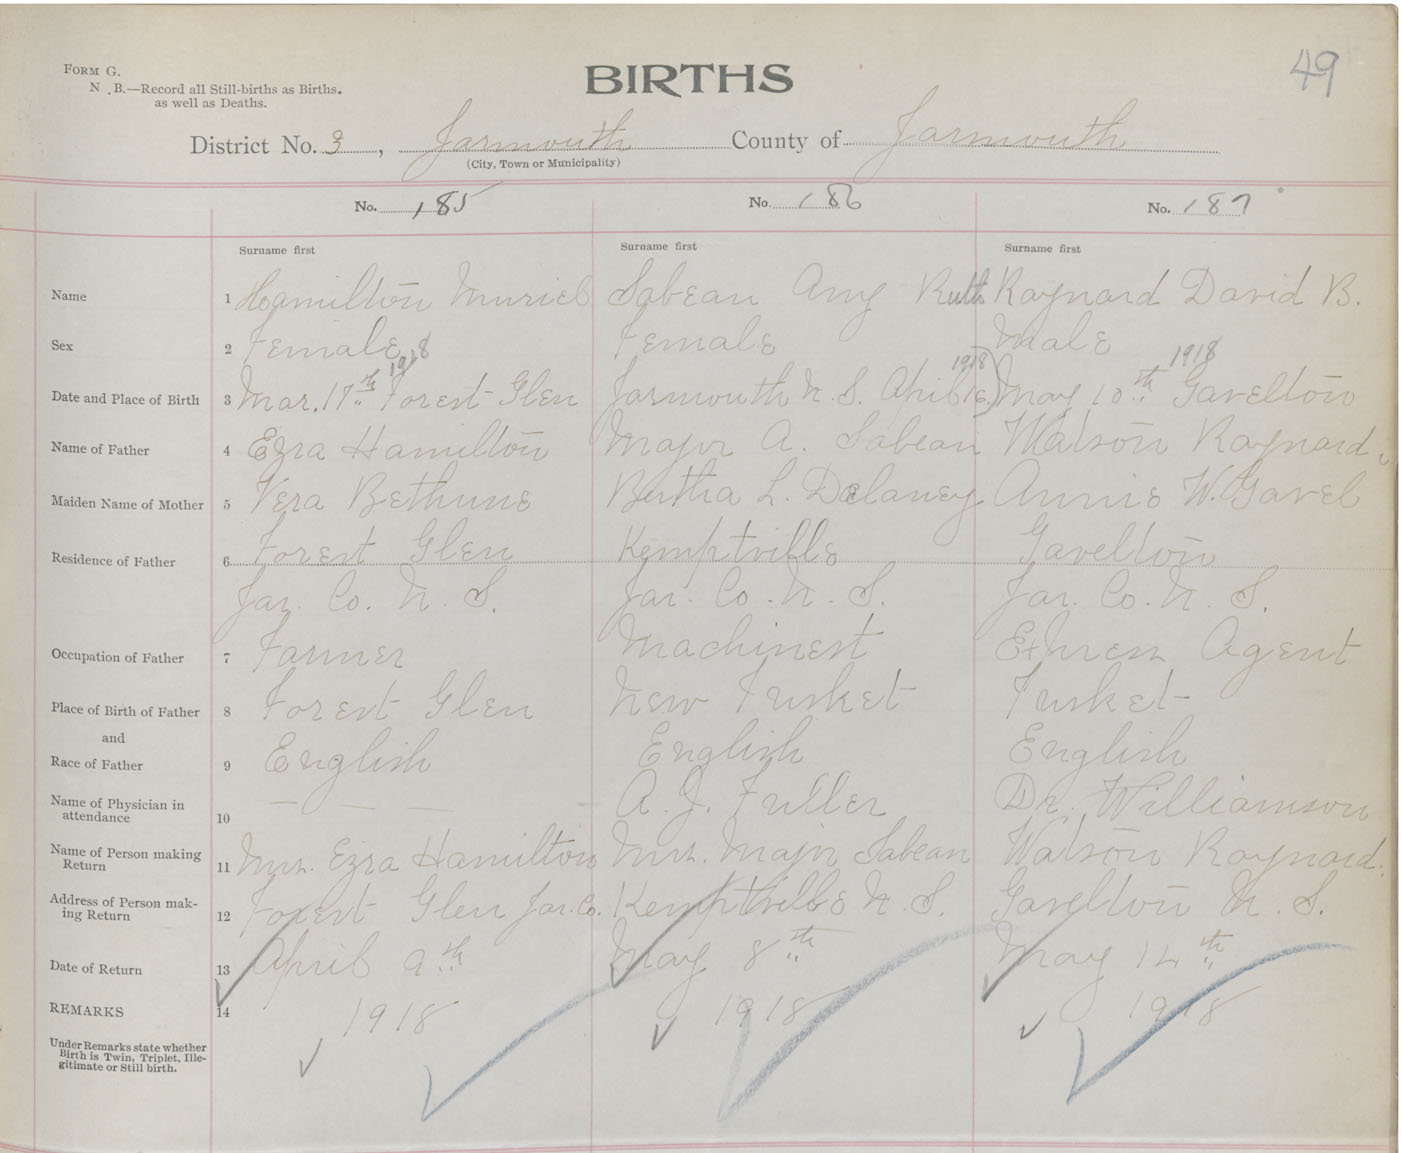 49
FORM G.
N.B.—Record all Still-births as Births.
as well as Deaths.
BIRTHS
District No. 3, Yarmouth County of Yarmouth
(City, Town or Municipality)
No. 185 No. 186 No. 187
Surname first Surname first Surname first
Name 1 Hamilton Muriel Sabean Amy Ruth Raynard David B.
Sex 2 Female Female Male
1918 1918 1918
Date and Place of Birth 3 Mar. 17th Forest Glen Yarmouth N. S. April 16 May 10th Gavelton
Name of Father 4 Ezra Hamilton Major A. Sabean Watson Raynard
Maiden Name of Mother 5 Vera Bethune Bertha L. Delaney Annie W. Gavel
Residence of Father 6 Forest Glen Kemptville Gavelton
Yar. Co. N. S. Yar. Co. N. S. Yar. Co. N. S.
Occupation of Father 7 Farmer Machinest Express Agent
Place of Birth of Father 8 Forest Glen New Tusket Tusket
and
Race of Father 9 English English English
Name of Physician in
attendance 10 — — — A. J. Fuller Dr. Williamson
Name of Person making
Return 11 Mrs. Ezra Hamilton Mrs. Major Sabean Watson Raynard
Address of Person mak-
ing Return 12 Forest Glen Yar. Co. Kemptville N. S. Gavelton N. S.
Date of Return 13 April 9th May 8th May 14th
REMARKS 14 1918 1918 1918
Under Remarks state whether
Birth is Twin, Triplet, Ille-
gitimate or Still birth.